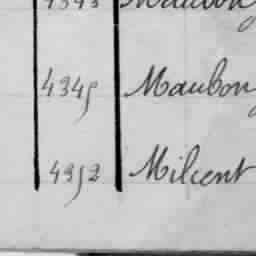 4345 Maubon
4352 Milcent